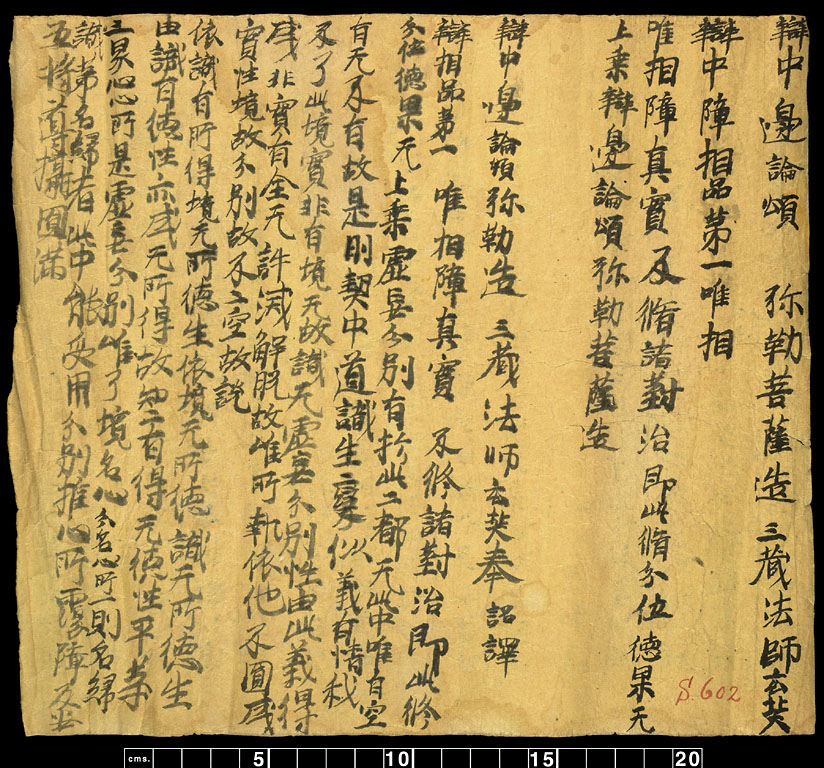 辯中邊論頌 弥勒菩薩造 三藏法師玄奘
辯中障相品第一唯相
唯相障真實及脩諸對治即此脩分位德果无
上乘辯邊論頌弥勒菩薩造
辯中邊論頌弥勒造 三藏法師玄奘奉詔譯
辯相品第一 唯相障真實 及修諸對治即此修
分位德果无上乘虛妄分別有於此二都无此中唯有空
有无及有故是則契中道識生變似義有情我
及了此境實非有境无故識无虛妄分別性由此義得
成非實有全无許滅解脫故唯所執依他及圓成
實性境故分別故及二空故說
依識有所得境无所德生依境无所德識无所德生
由識有德性亦成无所得故知二有得无德性平等
三界心心所是虛妄分別唯了境名心 亦名心所一則名緣
識第名緣者此中能受用分別推心所覆障及
五將導攝圓滿
S.602
cms. 5 10 15 20